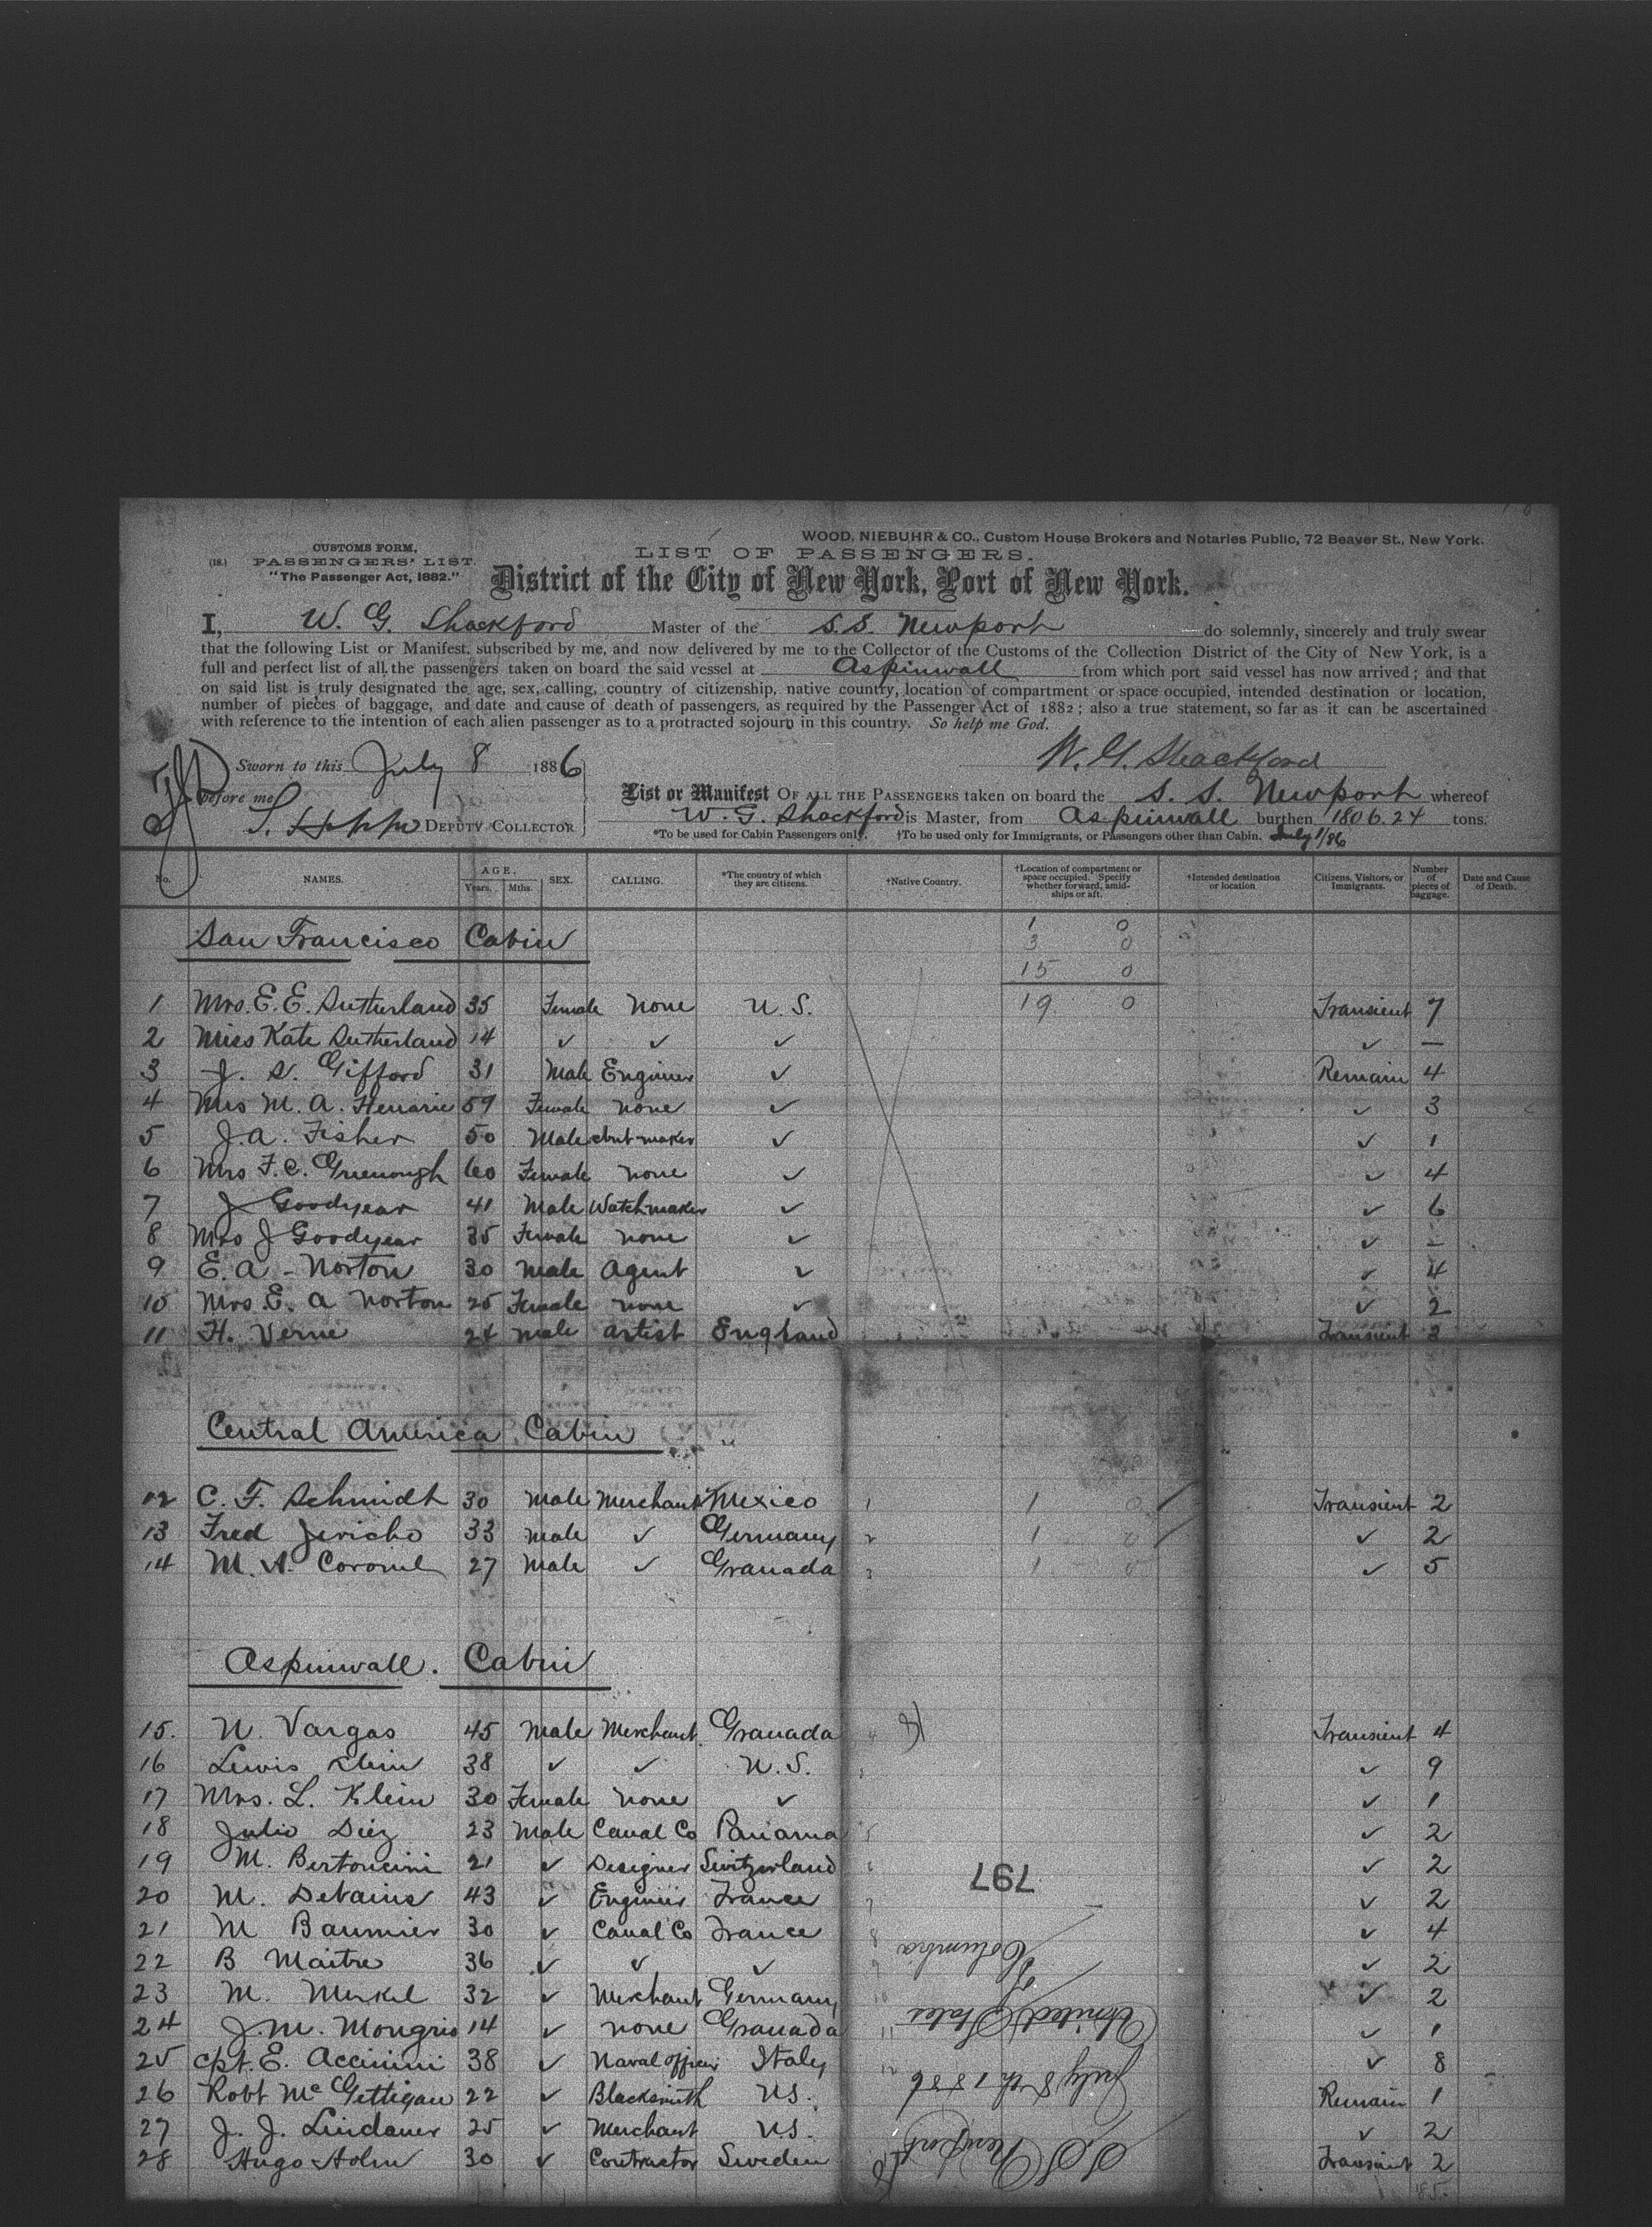 WOOD, NIEBUHR & CO., Custom House Brokers and Notaries Public, 72 Beaver St., New York.
(18.) CUSTOMS FORM,
PASSENGERS' LIST.
"The Passenger Act, 1882."
LIST OF PASSENGERS.
District of the City of New York, Port of New York.
I, W. G. Shackford Master of the S.S. Newport do solemnly, sincerely and truly swear
that the following List or Manifest, subscribed by me, and now delivered by me to the Collector of the Customs of the Collection District of the City of New York, is a
full and perfect list of all the passengers taken on board the said vessel at Aspinwall from which port said vessel has now arrived; and that
on said list is truly designated the age, sex, calling, country of citizenship, native country, location of compartment or space occupied, intended destination or location,
number of pieces of baggage, and date and cause of death of passengers, as required by the Passenger Act of 1882; also a true statement, so far as it can be ascertained
with reference to the intention of each alien passenger as to a protracted sojourn in this country. So help me God.
W. G. Shackford
Sworn to this July 8 1886
before me
DEPUTY COLLECTOR
List or Manifest OF ALL THE PASSENGERS taken on board the S. S. Newport whereof
W. G. Shackford is Master, from Aspinwall burthen 1806.24 tons.
*To be used for Cabin Passengers only. †To be used only for Immigrants, or Passengers other than Cabin. July 1/86
No. NAMES. AGE. Years. Mths. SEX. CALLING. *The country of which they are citizens. †Native Country. †Location of compartment or space occupied. Specify whether forward, amidships or aft. †Intended destination or location Citizens, Visitors, or Immigrants. Number of pieces of baggage. Date and Cause of Death.
1 0
San Francisco Cabin 3 0
15 0
1 Mrs. E. E. Sutherland 35 Female None U.S. 19 0 Transient 7
2 Miss Kate Sutherland 14 ✓ ✓ ✓ ✓ —
3 J. S. Gifford 31 Male Engineer ✓ Remain 4
4 Mrs M. A. Henarie 59 Female none ✓ ✓ 3
5 J. A. Fisher 50 Male ✓ ✓ 1
6 Mrs F. C. Greenough 60 Female none ✓ ✓ 4
7 J Goodyear 41 Male Watchmaker ✓ ✓ 6
8 Mrs J Goodyear 35 Female none ✓ ✓ –
9 E. A - Norton 30 Male Agent ✓ ✓ 4
10 Mrs E. A Norton 25 Female none ✓ ✓ 2
11 H. Verne 24 Male Artist England Transient 3
Central America Cabin "
12 C. F. Schmidt 30 Male Merchant Mexico 1 1 0 Transient 2
13 Fred Jericho 33 Male ✓ Germany 2 1 0 ✓ 2
14 M. A. Coronel 27 Male ✓ Granada 3 1 0 ✓ 5
Aspinwall. Cabin
15. N. Vargas 45 Male Merchant Granada 4 Transient 4
16 Lewis Klein 38 ✓ ✓ U.S. ✓ 9
17 Mrs. L. Klein 30 Female None ✓ ✓ 1
18 Julio Diez 23 Male Canal Co Panama 5 ✓ 2
19 M. Bertoncini 21 ✓ Designer Switzerland 6 ✓ 2
797
20 M. Debains 43 ✓ Engineer France 7 ✓ 2
21 M Baumier 30 ✓ Canal Co France 8 ✓ 4
22 B Maitre 36 ✓ ✓ ✓ 9 ✓ 2
23 M. Merkel 32 ✓ Merchant Germany 10 ✓ 2
24 J. M. Mongrio 14 ✓ none Granada 11 ✓ 1
25 Cpt. E. Accinini 38 ✓ Naval officer Italy 12 ✓ 8
26 Robt McGettigan 22 ✓ Blacksmith US. Remain 1
27 J. J. Lindauer 25 ✓ Merchant U.S. ✓ 2
28 Hugo Holm 30 ✓ Contractor Sweden Transient 2
85
S.S. Newport
July 8th 1886
United States
of
Columbia